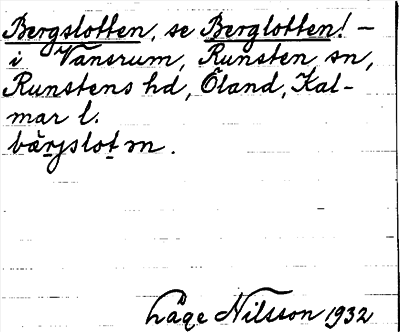 Bergslotten, se Berglotten! –
i Vansrum, Runsten sn,
Runstens hd, Öland, Kal-
mar l.
bärjslotn.
Låge Nilsson 1932